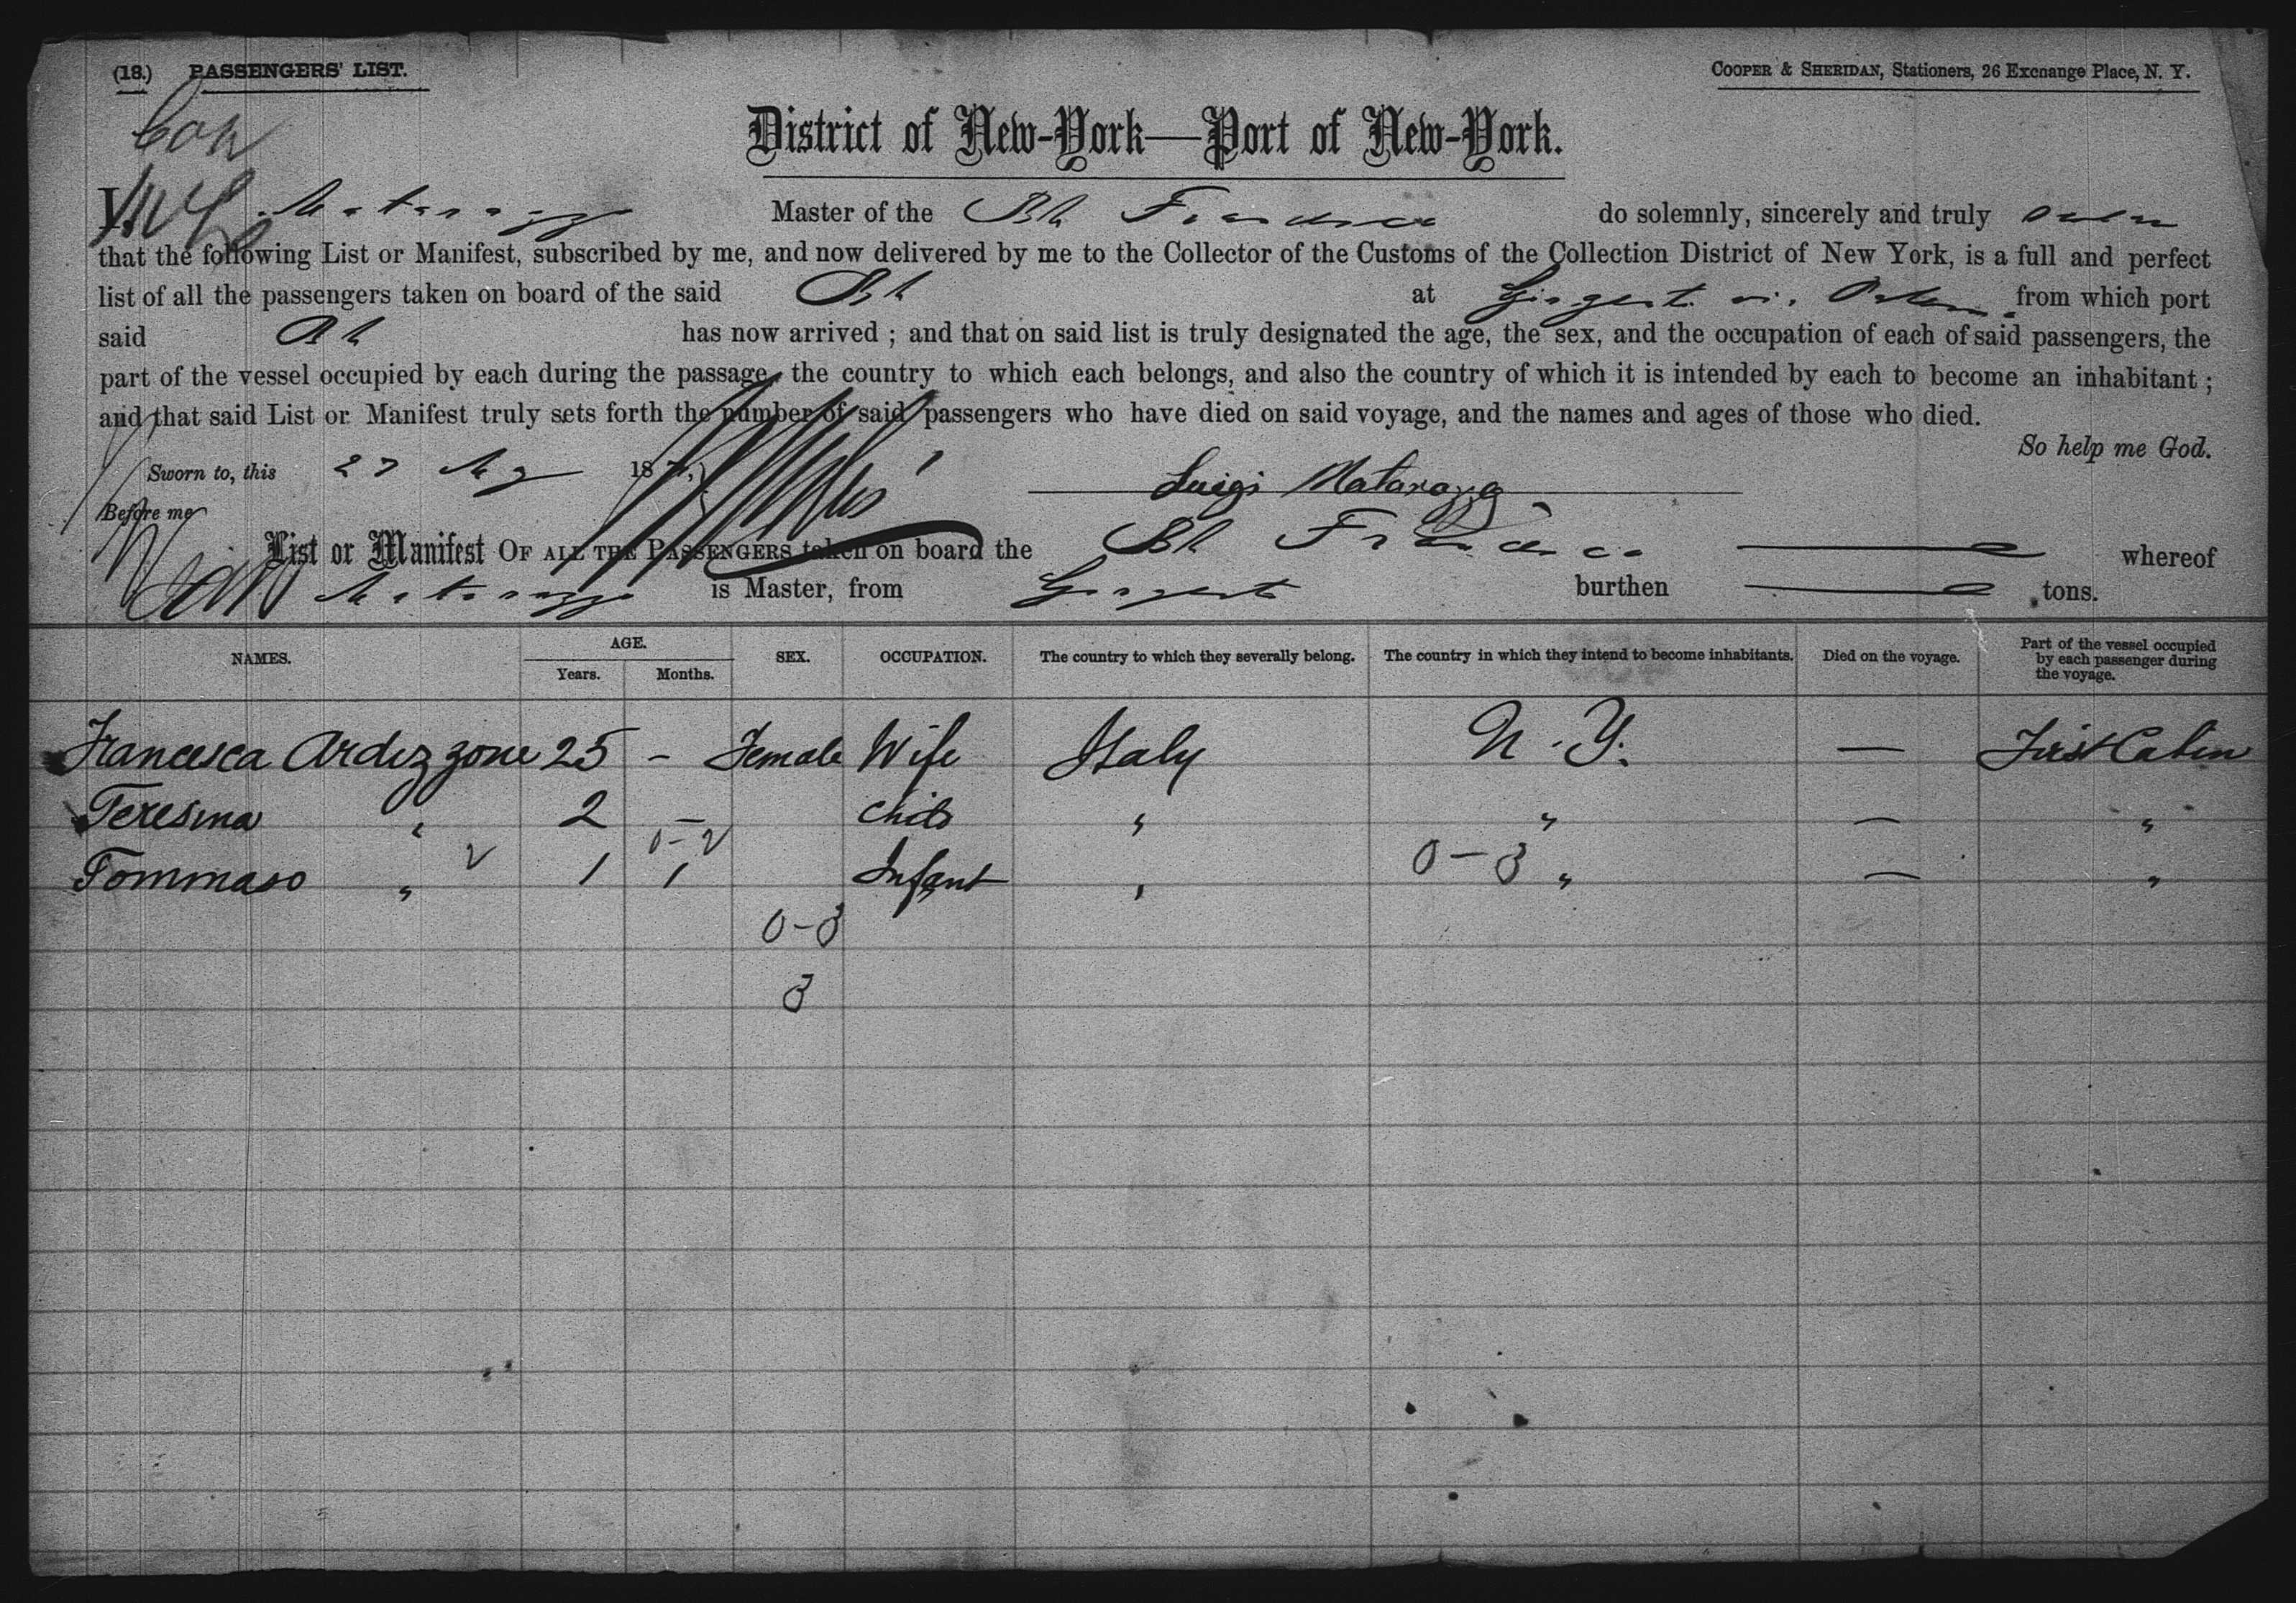 (18.) PASSENGERS' LIST.
COOPER & SHERIDAN, Stationers, 26 Exchange Place, N. Y.
District of New-York—Port of New-York.
I, Matarazzo Master of the Bk Francesca do solemnly, sincerely and truly
that the following List or Manifest, subscribed by me, and now delivered by me to the Collector of the Customs of the Collection District of New York, is a full and perfect
list of all the passengers taken on board of the said Bk at Girgenti from which port
said Bk has now arrived ; and that on said list is truly designated the age, the sex, and the occupation of each of said passengers, the
part of the vessel occupied by each during the passage, the country to which each belongs, and also the country of which it is intended by each to become an inhabitant ;
and that said List or Manifest truly sets forth the number of said passengers who have died on said voyage, and the names and ages of those who died.
So help me God.
Sworn to, this 27 18
Luigi Matarazzo
Before me
List or Manifest OF ALL THE PASSENGERS taken on board the Bk Francesca whereof
Matarazzo is Master, from Girgenti burthen tons.
NAMES. AGE. Years. Months. SEX. OCCUPATION. The country to which they severally belong. The country in which they intend to become inhabitants. Died on the voyage. Part of the vessel occupied by each passenger during the voyage.
Francesca Ardizzone 25 – Female Wife Italy N. Y. — First Cabin
Teresina " 2 — Child " " — "
0–2
Tommaso " 1 1 Infant " 0–3 " — "
0–3
3